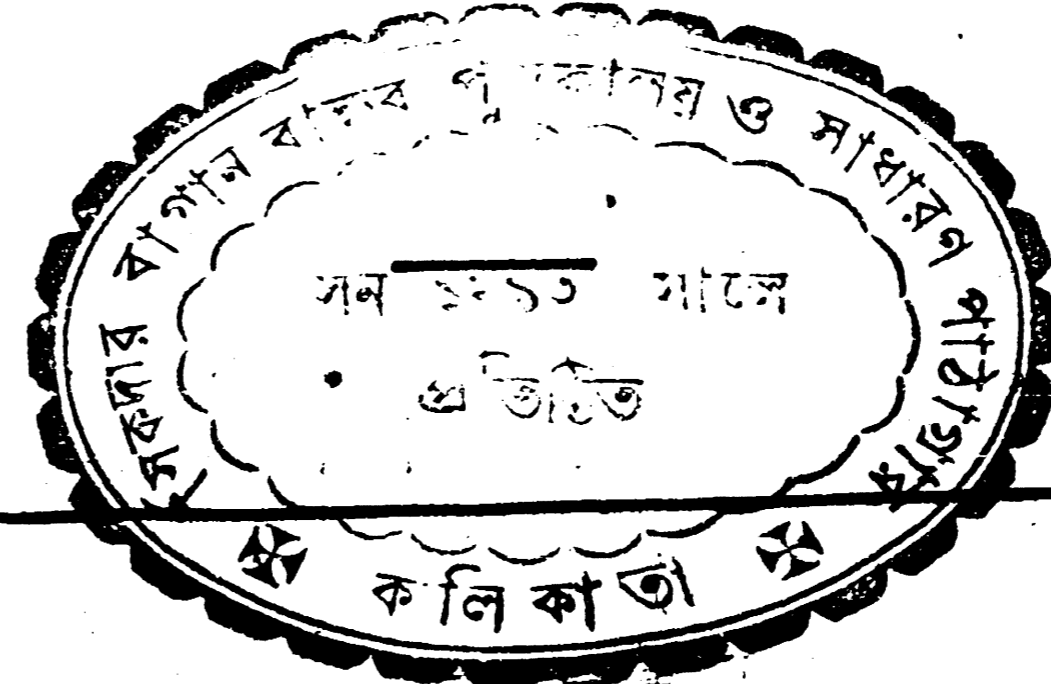 সিকদার বাগান বান্ধব পুস্তকালয় ও সাধারণ পাঠাগার
সন সালে
প্রতিষ্ঠিত
কলিকাতা